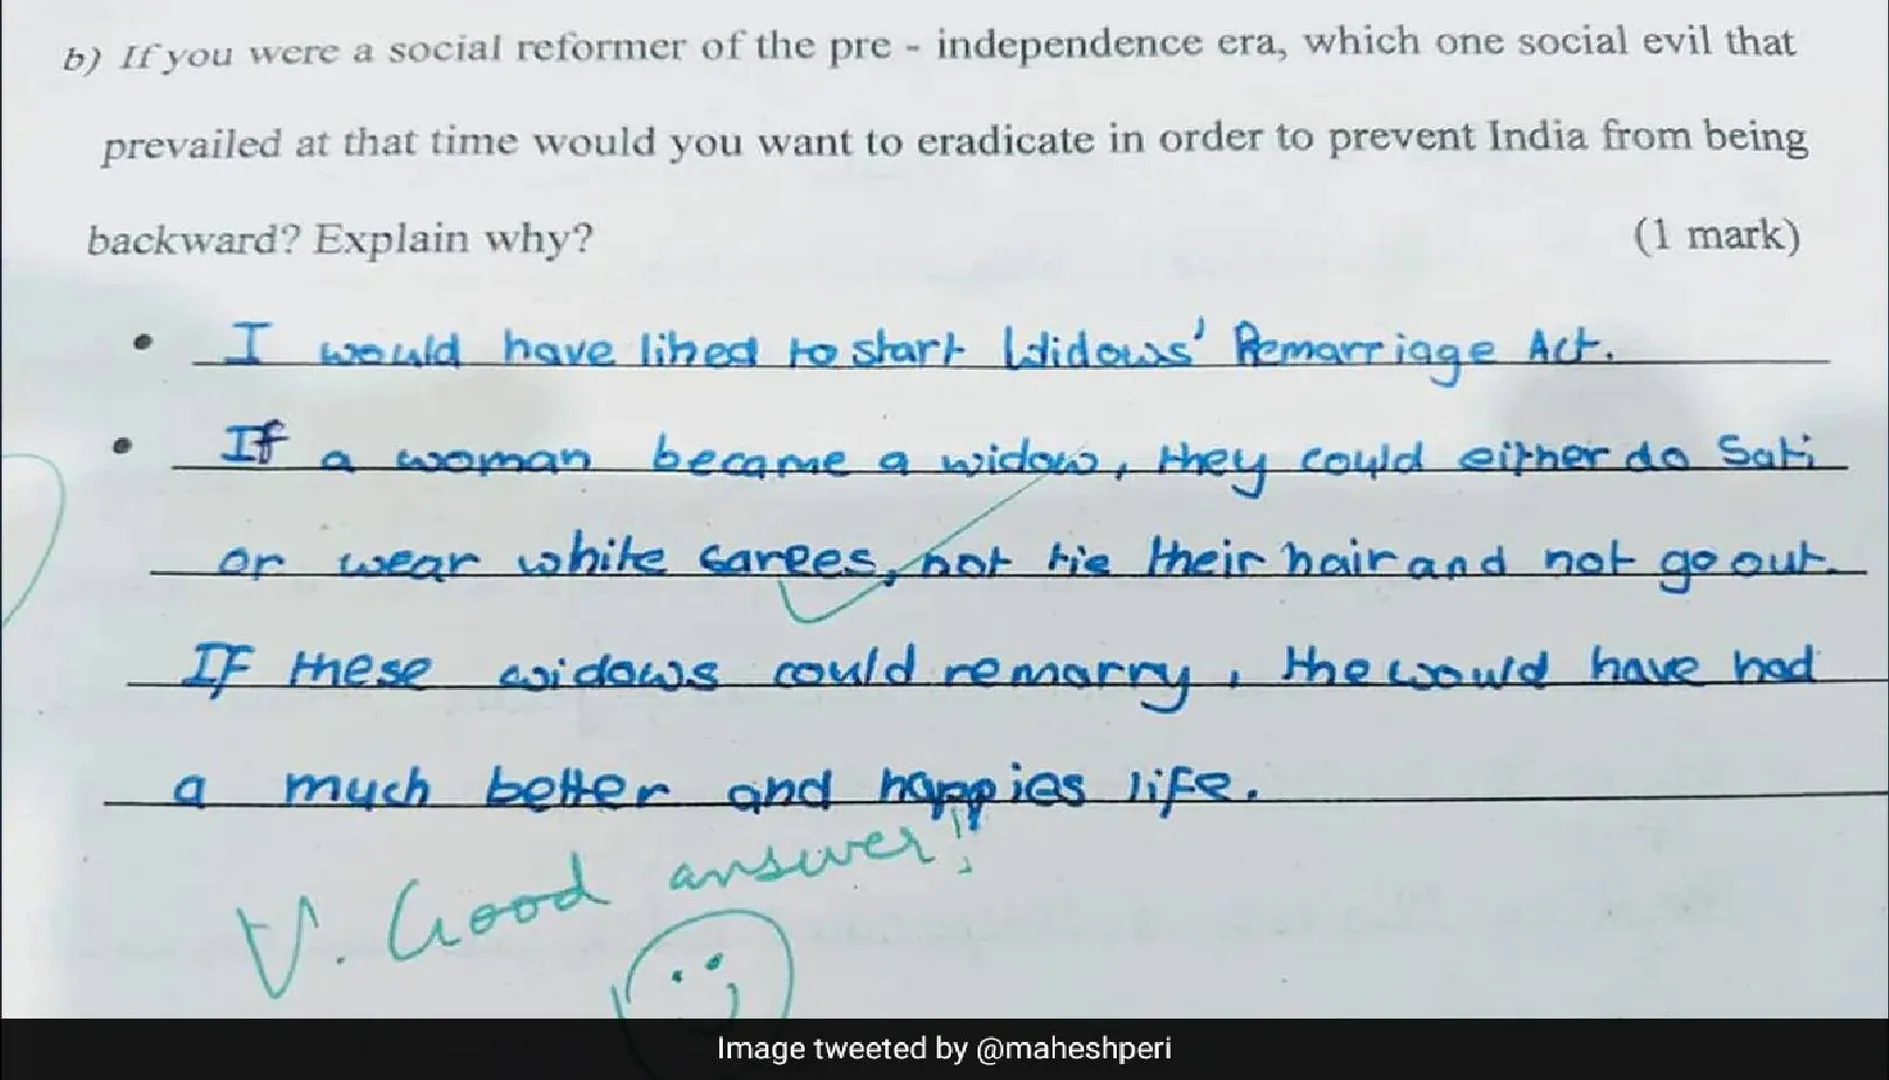 b) If you were a social reformer of the pre - independence era, which one social evil that
prevailed at that time would you want to eradicate in order to prevent India from being
backward? Explain why?
(1 mark)
• I would have liked to start Widows' Remarriage Act.
• If a woman became a widow, they could either do Sati
or wear white sarees, not tie their hair and not go out.
If these widows could remarry, the would have had
a much better and happies life.
V. Good answer!!
Image tweeted by @maheshperi